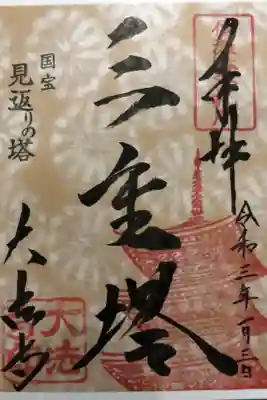 奉拝
令和三年一月三日
三重塔
国宝
見返りの塔
大法寺